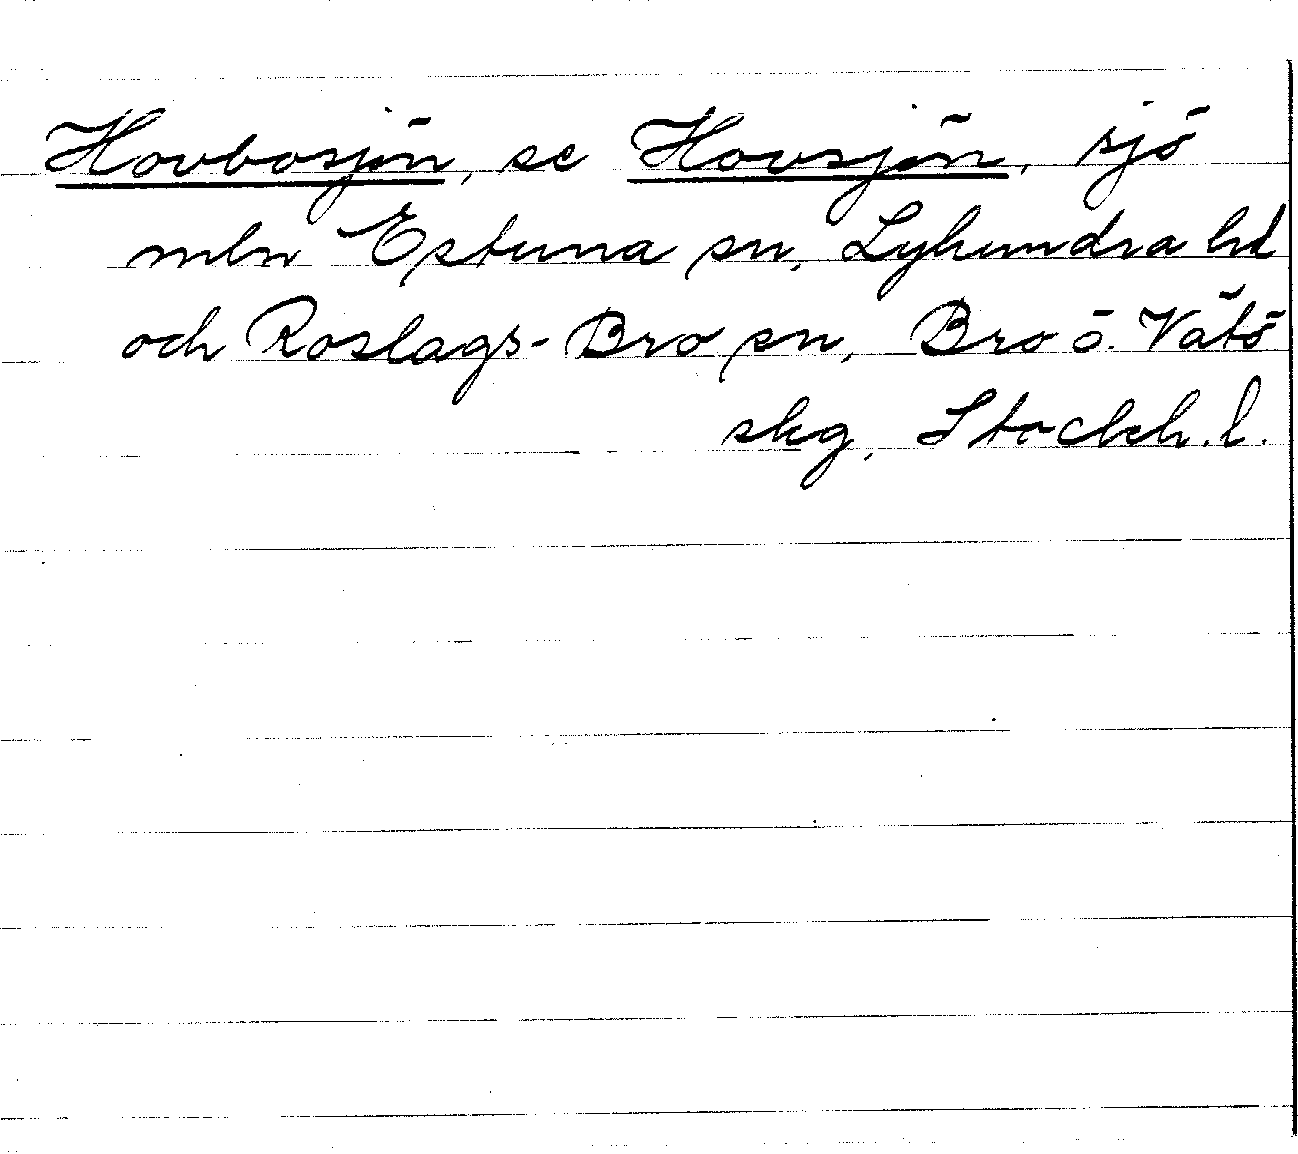 Hovbosjön, se Hovsjön, sjö
mln Estuna sn, Lyhundra hd
och Roslags-Bro sn, Bro o. Vätö
skg, Stockh. l.